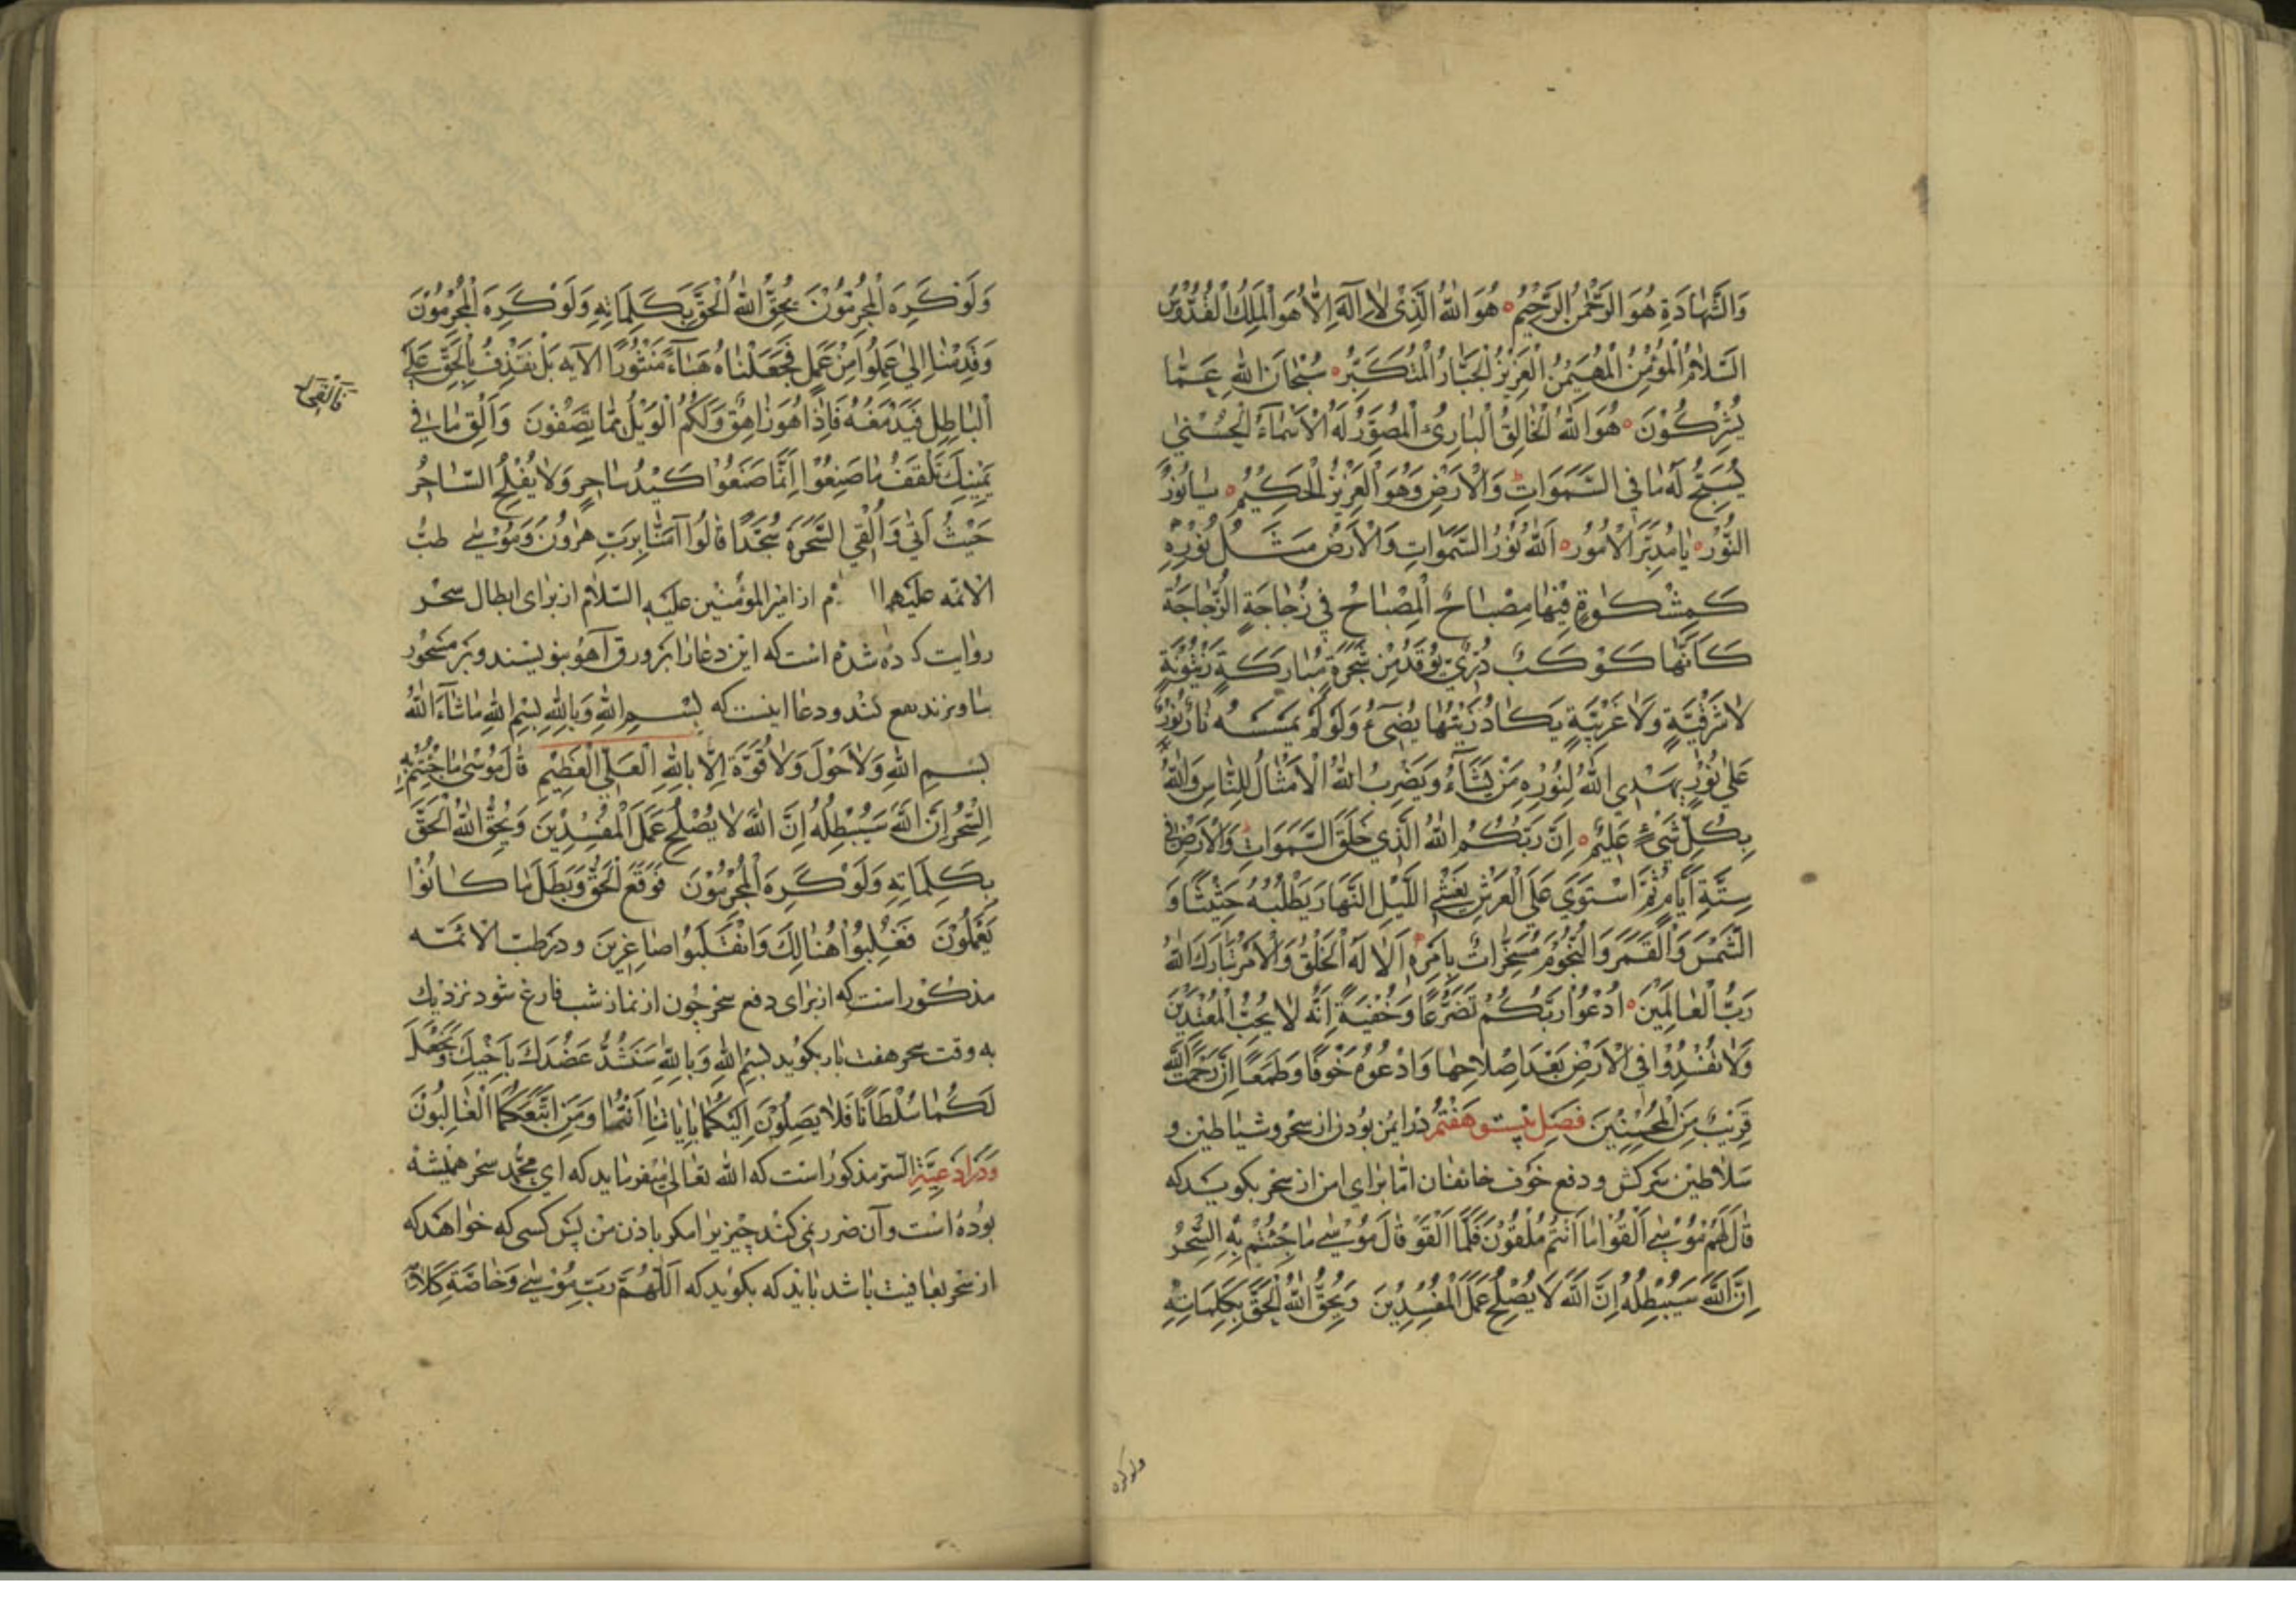 وَالشَّهَادَةِ هُوَ الرَّحْمٰنُ الرَّحِيْمُ ٥ هُوَ اللّٰهُ الَّذِىْ لَا اِلٰهَ اِلَّا هُوَ الْمَلِكُ الْقُدُّوْسُ
السَّلَامُ الْمُؤْمِنُ الْمُهَيْمِنُ الْعَزِيْزُ الْجَبَّارُ الْمُتَكَبِّرُ ٥ سُبْحَانَ اللّٰهِ عَمَّا
يُشْرِكُوْنَ ٥ هُوَ اللّٰهُ الْخَالِقُ الْبَارِئُ الْمُصَوِّرُ لَهُ الْاَسْمَاءُ الْحُسْنٰى
يُسَبِّحُ لَهُ مَا فِى السَّمَوَاتِ وَالْاَرْضِ وَهُوَ الْعَزِيْزُ الْحَكِيْمُ ٥ يَا نُوْرُ
النُّوْرُ ٥ يَا مُدَبِّرَ الْاُمُوْرِ ٥ اَللّٰهُ نُوْرُ السَّمٰوَاتِ وَالْاَرْضِ مَثَلُ نُوْرِهِ
كَمِشْكٰوةٍ فِيْهَا مِصْبَاحٌ الْمِصْبَاحُ فِى زُجَاجَةٍ الزُّجَاجَةُ
كَاَنَّهَا كَوْكَبٌ دُرِّىٌّ يُوْقَدُ مِنْ شَجَرَةٍ مُبَارَكَةٍ زَيْتُوْنَةٍ
لَا شَرْقِيَّةٍ وَلَا غَرْبِيَّةٍ يَكَادُ زَيْتُهَا يُضِىءُ وَلَوْ لَمْ تَمْسَسْهُ نَارٌ نُوْرٌ
عَلٰى نُوْرٍ يَهْدِى اللّٰهُ لِنُوْرِهِ مَنْ يَشَاءُ وَيَضْرِبُ اللّٰهُ الْاَمْثَالَ لِلنَّاسِ وَاللّٰهُ
بِكُلِّ شَىْءٍ عَلِيْمٌ ٥ اِنَّ رَبَّكُمُ اللّٰهُ الَّذِى خَلَقَ السَّمَوَاتِ وَالْاَرْضَ فِى
سِتَّةِ اَيَّامٍ ثُمَّ اسْتَوَى عَلَى الْعَرْشِ يُغْشِى اللَّيْلَ النَّهَارَ يَطْلُبُهُ حَثِيْثًا وَ
الشَّمْسَ وَالْقَمَرَ وَالنُّجُوْمَ مُسَخَّرَاتٌ بِاَمْرِهِ اَلَا لَهُ الْخَلْقُ وَالْاَمْرُ تَبَارَكَ اللّٰهُ
رَبُّ الْعَالَمِيْنَ ٥ اُدْعُوْا رَبَّكُمْ تَضَرُّعًا وَخُفْيَةً اِنَّهُ لَا يُحِبُّ الْمُعْتَدِيْنَ
وَلَا تُفْسِدُوْا فِى الْاَرْضِ بَعْدَ اِصْلَاحِهَا وَادْعُوْهُ خَوْفًا وَطَمَعًا اِنَّ رَحْمَتَ اللّٰهِ
قَرِيْبٌ مِنَ الْمُحْسِنِيْنَ فصل بيست و هفتم در ايمن بودن از سحر و شياطين و
سلاطين سركش و دفع خوف خائفان اما براى امن از سحر بكويد كه
قَالَ لَهُمْ مُوْسٰى اَلْقُوْا مَا اَنْتُمْ مُلْقُوْنَ فَلَمَّا اَلْقَوْا قَالَ مُوْسٰى مَا جِئْتُمْ بِهِ السِّحْرُ
اِنَّ اللّٰهَ سَيُبْطِلُهُ اِنَّ اللّٰهَ لَا يُصْلِحُ عَمَلَ الْمُفْسِدِيْنَ وَيُحِقُّ اللّٰهُ الْحَقَّ بِكَلِمَاتِهِ
ولوكره
وَلَوْ كَرِهَ الْمُجْرِمُوْنَ يُحِقُّ اللّٰهُ الْحَقَّ بِكَلِمَاتِهِ وَلَوْ كَرِهَ الْمُجْرِمُوْنَ
وَقَدِمْنَا اِلٰى عَمِلُوْا مِنْ عَمَلٍ فَجَعَلْنَاهُ هَبَاءً مَنْثُوْرًا الآيه بَلْ نَقْذِفُ بِالْحَقِّ عَلَى
الْبَاطِلِ فَيَدْمَغُهُ فَاِذَا هُوَ زَاهِقٌ وَلَكُمُ الْوَيْلُ مِمَّا تَصِفُوْنَ وَاَلْقِ مَا فِى
يَمِيْنِكَ تَلْقَفْ مَا صَنَعُوْا اِنَّمَا صَنَعُوْا كَيْدُ سَاحِرٍ وَلَا يُفْلِحُ السَّاحِرُ
حَيْثُ اَتٰى وَاُلْقِىَ السَّحَرَةُ سُجَّدًا قَالُوْا آمَنَّا بِرَبِّ هٰرُوْنَ وَمُوْسٰى طب
الائمه عليهم از امير المؤمنين عليه السلام از براى ابطال سحر
روايت كرده شده است كه اين دعا را بر ورق آهو بنويسند و بر مسحور
بياويزند نفع كند و دعا اينست كه بِسْمِ اللّٰهِ وَبِاللّٰهِ بِسْمِ اللّٰهِ مَا شَاءَ اللّٰهُ
بِسْمِ اللّٰهِ وَلَا حَوْلَ وَلَا قُوَّةَ اِلَّا بِاللّٰهِ الْعَلِىِّ الْعَظِيْمِ قَالَ مُوْسٰى مَا جِئْتُمْ بِهِ
السِّحْرُ اِنَّ اللّٰهَ سَيُبْطِلُهُ اِنَّ اللّٰهَ لَا يُصْلِحُ عَمَلَ الْمُفْسِدِيْنَ وَيُحِقُّ اللّٰهُ الْحَقَّ
بِكَلِمَاتِهِ وَلَوْ كَرِهَ الْمُجْرِمُوْنَ فَوَقَعَ الْحَقُّ وَبَطَلَ مَا كَانُوْا
يَعْمَلُوْنَ فَغُلِبُوْا هُنَالِكَ وَانْقَلَبُوْا صَاغِرِيْنَ و در طب الائمه
مذكور است كه از براى دفع سحر چون از نماز شب فارغ شود نزديك
به وقت سحر هفت بار بكويد بِسْمِ اللّٰهِ وَبِاللّٰهِ سَنَشُدُّ عَضُدَكَ بِاَخِيْكَ وَنَجْعَلُ
لَكُمَا سُلْطَانًا فَلَا يَصِلُوْنَ اِلَيْكُمَا بِاٰيَاتِنَا اَنْتُمَا وَمَنِ اتَّبَعَكُمَا الْغَالِبُوْنَ
و در ادعية السر مذكور است كه الله تعالى ميفرمايد كه اى محمد سحر هميشه
بوده است و آن ضرر نمى كند چيزيرا مكر باذن من پس كسى كه خواهد كه
از سحر بعافيت باشد بايد كه بكويد كه اَللّٰهُمَّ رَبَّ مُوْسٰى وَخَاصَّهُ كَلَامَهُ